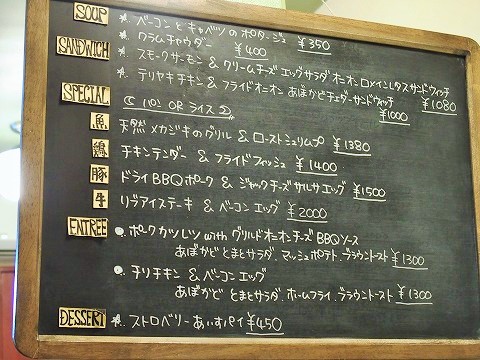 SOUP
* ベーコンとキャベツのポタージュ ¥350
* クラムチャウダー ¥400
SANDWICH
* スモークサーモン & クリームチーズ エッグサラダ オニオン ロメインレタス サンドウィッチ ¥1080
* テリヤキチキン & フライドオニオン あぼかど チェダーサンドウィッチ ¥1000
SPECIAL
(パン OR ライス)
魚 天然 メカジキのグリル & ローストシュリムプ ¥1380
鶏 チキンテンダー & フライドフィッシュ ¥1400
豚 ドライBBQポーク & ジャックチーズサルサエッグ ¥1500
牛 リブアイステーキ & ベーコンエッグ ¥2000
ENTREE
● ポークカツレツ with グリルドオニオンチーズ BBQソース
あぼかど とまとサラダ. マッシュポテト. ブラウントースト ¥1300
● チリチキン & ベーコンエッグ
あぼかど とまとサラダ. ホームフライ. ブラウントースト ¥1300
DESSERT
* ストロベリーあいすパイ ¥450